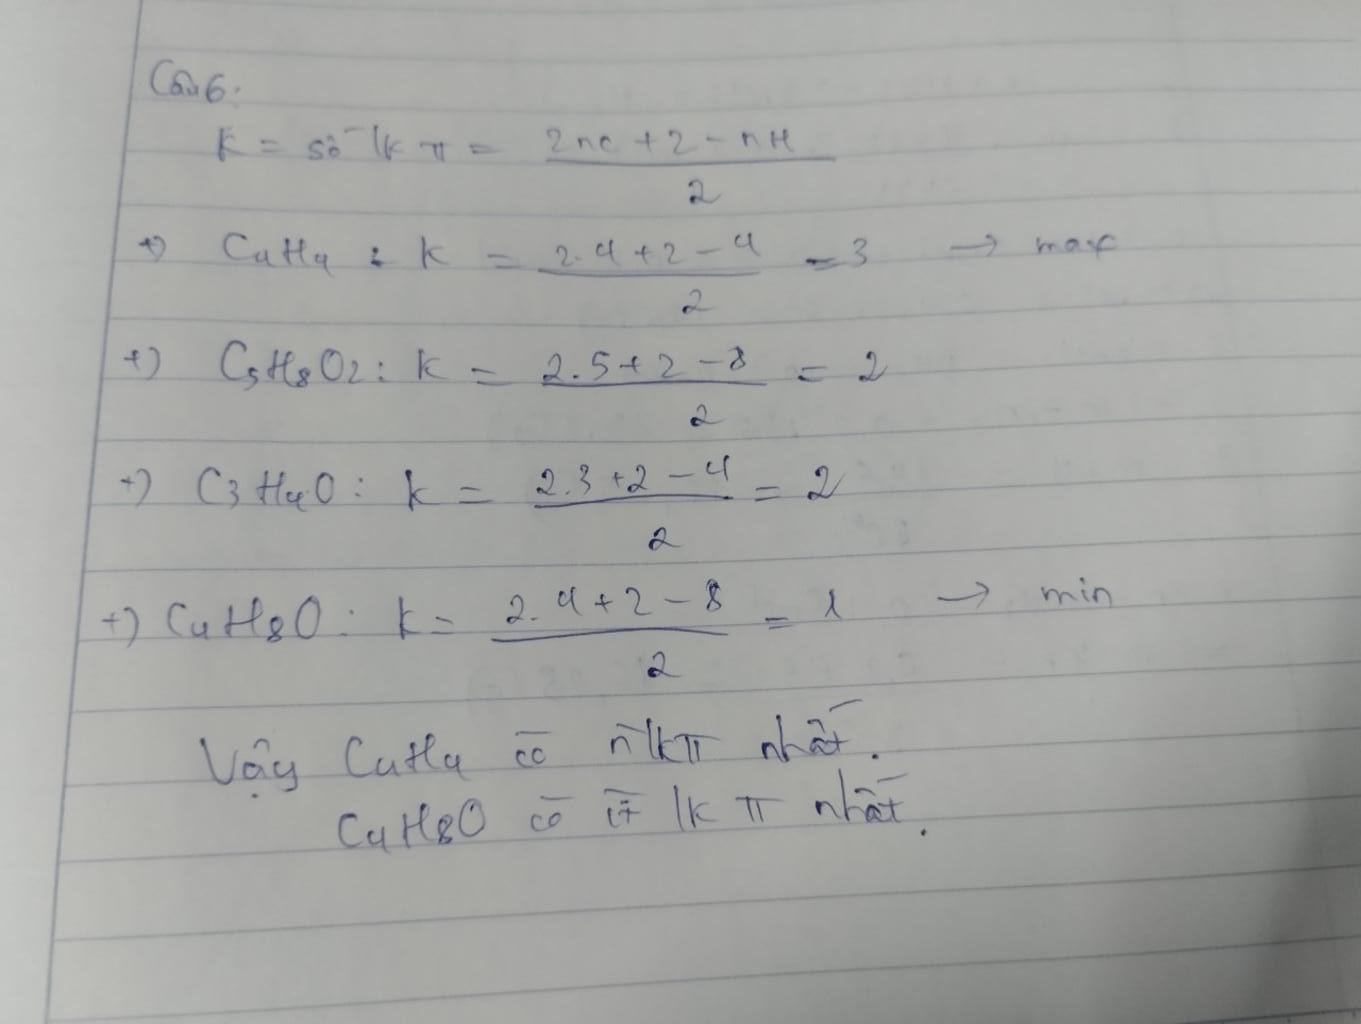 Câu 6:
K = số lk π = (2nc + 2 - nH) / 2
+) C4H4 : k = (2.4 + 2 - 4) / 2 = 3 → max
+) C5H8O2 : k = (2.5 + 2 - 8) / 2 = 2
+) C3H4O : k = (2.3 + 2 - 4) / 2 = 2
+) C4H8O : k = (2.4 + 2 - 8) / 2 = 1 → min
Vậy C4H4 có n̄ lk π nhất.
C4H8O có ít lk π nhất.